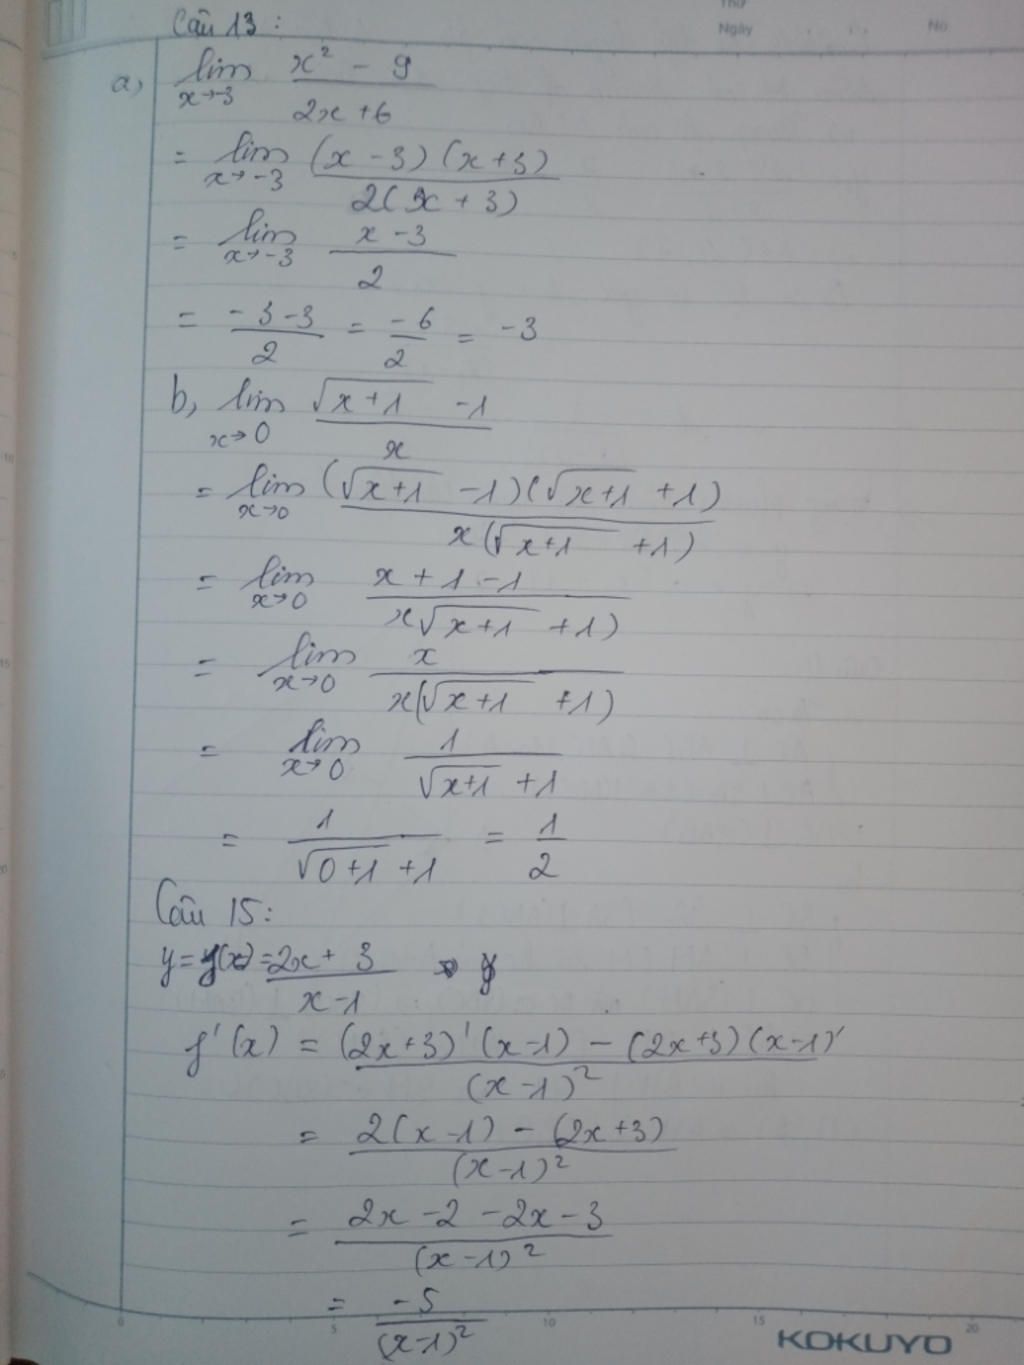 Thứ
Ngày No
Câu 13 :
a, lim x→-3 (x² - 9)/(2x + 6)
= lim x→-3 (x - 3)(x + 3)/2(x + 3)
= lim x→-3 (x - 3)/2
= (-3 - 3)/2 = -6/2 = -3
b, lim x→0 (√(x+1) - 1)/x
= lim x→0 (√(x+1) - 1)(√(x+1) + 1)/x(√(x+1) + 1)
= lim x→0 (x + 1 - 1)/x√(x+1) + 1)
= lim x→0 x/x(√(x+1) + 1)
= lim x→0 1/(√(x+1) + 1)
= 1/(√(0+1) + 1) = 1/2
Câu 15:
y = y(x) = (2x + 3)/(x - 1) => y
f'(x) = ((2x+3)'(x-1) - (2x+3)(x-1)'/(x-1)²
= (2(x-1) - (2x+3))/(x-1)²
= (2x - 2 - 2x - 3)/(x-1)²
= -5/(x-1)²
0 5 10 15 20
KOKUYO